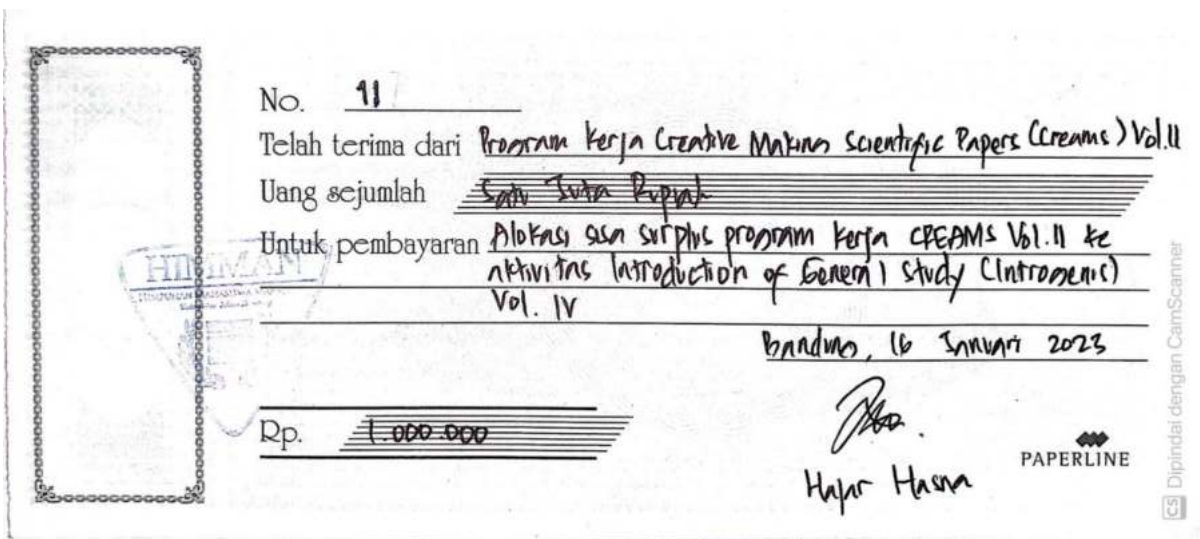 No. 11
Telah terima dari Program Kerja Creative Making Scientific Papers (Creams) Vol.II
Uang sejumlah Satu Juta Rupiah
Untuk pembayaran Alokasi sisa surplus program kerja CREAMS Vol.II ke
aktivitas Introduction of General Study (Introgenis)
Vol. IV
HIMMAN
Bandung, 16 Januari 2023
Rp. 1.000.000
Hajar Hasna
PAPERLINE
CS Dipindai dengan CamScanner